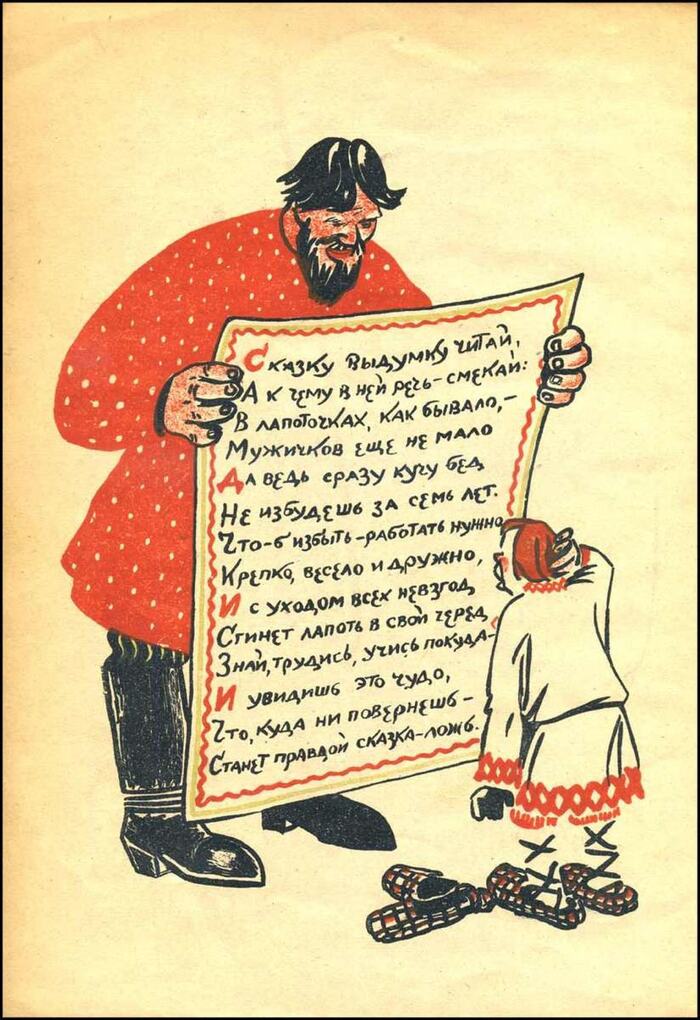 Сказку выдумку читай,
А к чему в ней речь-смекай:
В лапоточках, как бывало,-
Мужичков еще не мало
Да ведь сразу кучу бед
Не избудешь за семь лет.
Что-б избыть-работать нужно
Крепко, весело и дружно,
И с уходом всех невзгод,
Сгинет лапоть в свой черед,
Знай, трудись, учись покуда-
И увидишь это чудо,
Что, куда ни повернешь-
Станет правдой сказка-ложь.